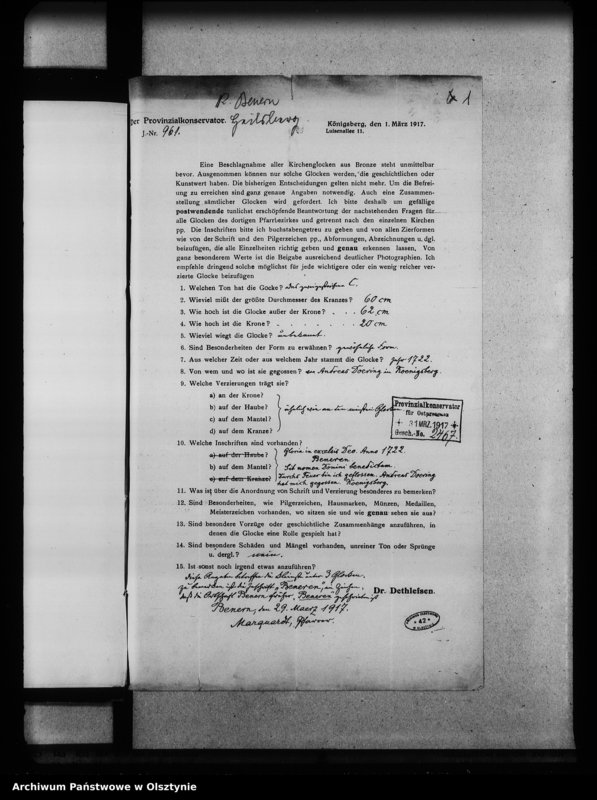 R. Benern
1
Der Provinzialkonservator.
J.-Nr. 961.
Königsberg, den 1. März 1917.
Luisenallee 11.
Eine Beschlagnahme aller Kirchenglocken aus Bronze steht unmittelbar
bevor. Ausgenommen können nur solche Glocken werden, die geschichtlichen oder
Kunstwert haben. Die bisherigen Entscheidungen gelten nicht mehr. Um die Befrei-
ung zu erreichen sind ganz genaue Angaben notwendig. Auch eine Zusammen-
stellung sämtlicher Glocken wird gefordert. Ich bitte deshalb um gefällige
postwendende tunlichst erschöpfende Beantwortung der nachstehenden Fragen für
alle Glocken des dortigen Pfarrbezirkes und getrennt nach den einzelnen Kirchen
pp. Die Inschriften bitte ich buchstabengetreu zu geben und von allen Zierformen
wie von der Schrift und den Pilgerzeichen pp., Abformungen, Abzeichnungen u. dgl.
beizufügen, die alle Einzelheiten richtig geben und genau erkennen lassen. Von
ganz besonderem Werte ist die Beigabe ausreichend deutlicher Photographien. Ich
empfehle dringend solche möglichst für jede wichtigere oder ein wenig reicher ver-
zierte Glocke beizufügen
1. Welchen Ton hat die Gocke? C.
2. Wieviel mißt der größte Durchmesser des Kranzes? 60 cm
3. Wie hoch ist die Glocke außer der Krone? . . . 62 cm
4. Wie hoch ist die Krone? . . . . . . . 20 cm
5. Wieviel wiegt die Glocke? unbekannt.
6. Sind Besonderheiten der Form zu erwähnen? gewöhnliche Form.
7. Aus welcher Zeit oder aus welchem Jahr stammt die Glocke? Jahr 1722.
8. Von wem und wo ist sie gegossen? von Andreas Doering in Koenigsberg.
9. Welche Verzierungen trägt sie?
a) an der Krone?
b) auf der Haube?
c) auf dem Mantel?
d) auf dem Kranze?
Provinzialkonservator
für Ostpreussen
+ 31 MRZ. 1917 +
Gesch.-No. 2467
10. Welche Inschriften sind vorhanden?
a) auf der Haube?
b) auf dem Mantel?
c) auf dem Kranze?
Gloria in excelsis Deo. Anno 1722.
Beneren
Sit nomen Domini benedictum
Durchs Feuer bin ich geflossen. Andreas Doering
hat mich gegossen Koenigsberg.
11. Was ist über die Anordnung von Schrift und Verzierung besonderes zu bemerken?
12. Sind Besonderheiten, wie Pilgerzeichen, Hausmarken, Münzen, Medaillen,
Meisterzeichen vorhanden, wo sitzen sie und wie genau sehen sie aus?
13. Sind besondere Vorzüge oder geschichtliche Zusammenhänge anzuführen, in
denen die Glocke eine Rolle gespielt hat?
14. Sind besondere Schäden und Mängel vorhanden, unreiner Ton oder Sprünge
u. dergl.? nein.
15. Ist sonst noch irgend etwas anzuführen?
Diese Angaben betreffen die kleinste unter 3 Glocken.
zu bemerken ist die Inschrift „Beneren“, ein Zeichen,
daß die Ortschaft Benern früher „Beneren“ geschrieben ist
Dr. Dethlefsen.
Benern, den 29. Maerz 1917.
Marquardt, Pfarrer.
42
Archiwum Państwowe w Olsztynie